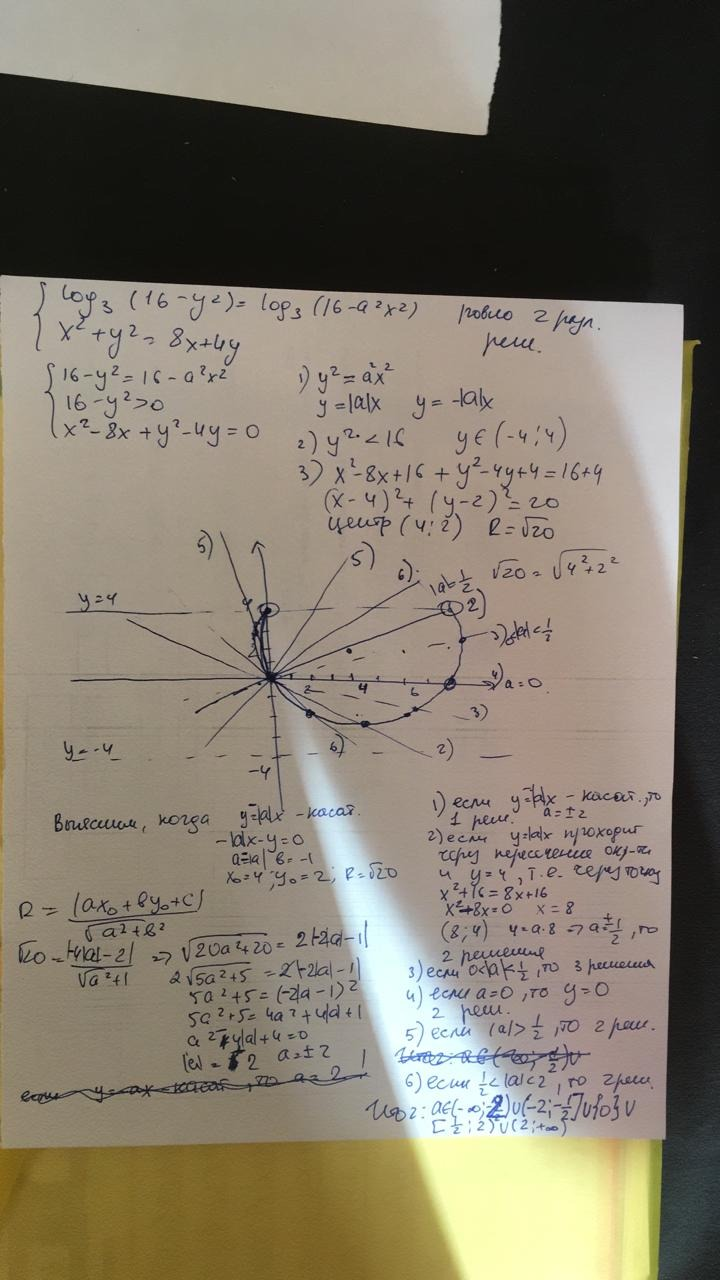 log₃ (16-y²) = log₃ (16-a²x²) ровно 2 разл.
x²+y² = 8x+4y реш.
16-y² = 16-a²x²
16-y²>0
x²-8x+y²-4y=0
1) y²=a²x²
y=|a|x y=-|a|x
2) y²<16 y∈(-4;4)
3) x²-8x+16 + y²-4y+4=16+4
(x-4)²+(y-2)²=20
центр (4;2) R=√20
√20 = √4²+2²
5)
5)
6)
|a|=1/2
2)
y=4
4
2
3) 0<|a|<1/2
2 4 6
4) a=0
3)
6)
2)
y=-4
-4
Выясним, когда y=-|a|x - касат.
-|a|x-y=0
a=-|a| в=-1
x₀=4; y₀=2; R=√20
R = |ax₀+вy₀+c| / √a²+в²
√20 = |-4|a|-2| / √a²+1 => √20a²+20 = 2|-2|a|-1|
2√5a²+5 = 2|-2|a|-1|
5a²+5=(-2|a|-1)²
5a²+5=4a²+4|a|+1
a²-4|a|+4=0
|a|=2 a=±2
если y=ax касат, то a=2
1) если y=-|a|x - касат., то
1 реш. a=±2
2) если y=|a|x проходит
через пересечение окр-ти
и y=4, т.е. через точку
x²+16=8x+16
x²-8x=0 x=8
(8;4) 4=a·8 => a=±1/2, то
2 решения
3) если 0<|a|<1/2, то 3 решения
4) если a=0, то y=0
2 реш.
5) если |a|>1/2, то 2 реш.
6) если 1/2<|a|<2, то 2 реш.
Итог: a∈(-∞;-2)∪(-2;-1/2]∪{0}∪
[1/2;2)∪(2;+∞)